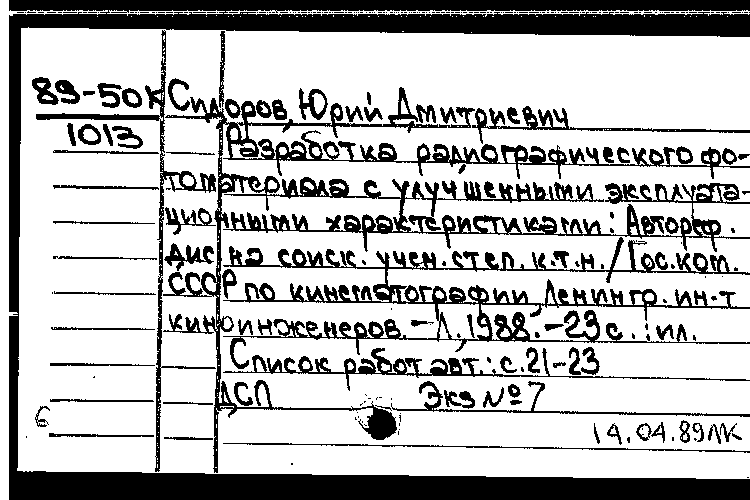 89-50К Сидоров, Юрий Дмитриевич
1013
Разработка радиографического фо-
томатериала с улучшенными эксплуата-
ционными характеристиками: Автореф.
дис на соиск. учен. степ. к.т.н. / Гос. ком.
СССР по кинематографии, Ленингр. ин-т
киноинженеров. - Л., 1988. - 23 с. : ил.
Список работ авт.: с. 21-23
ДСП Экз № 7
6
14.04.89 ЛК